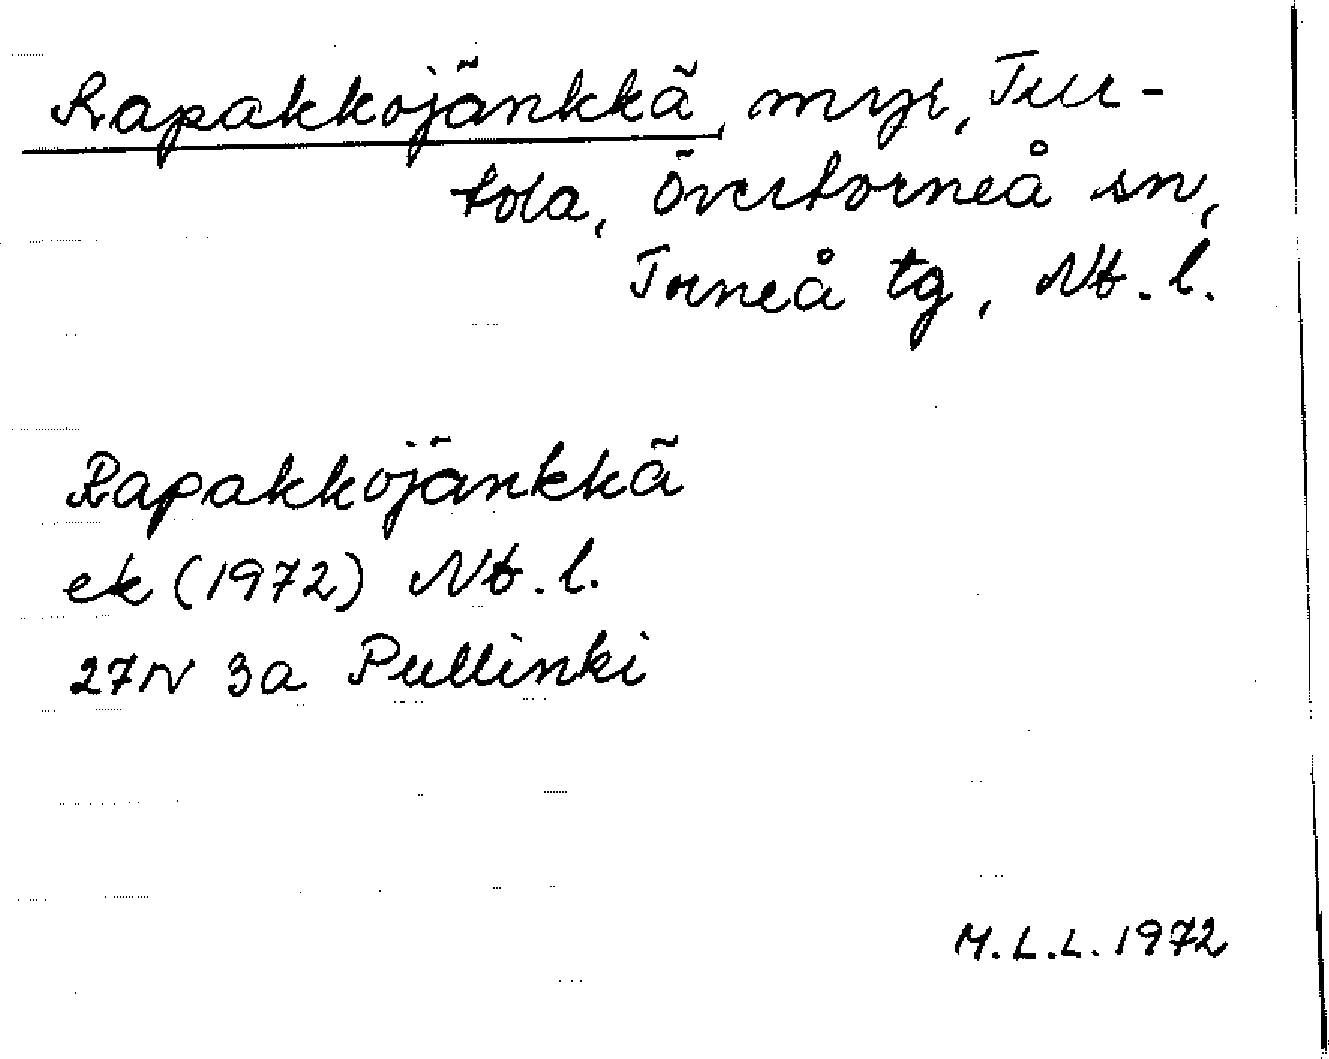 Rapakkojänkkä, myr, Tur-
tola, Övertorneå sn,
Torneå tg, Nb. l.
Rapakkojänkkä
ek (1972) Nb. l.
27N 3a Pullinki
M.L.L. 1972